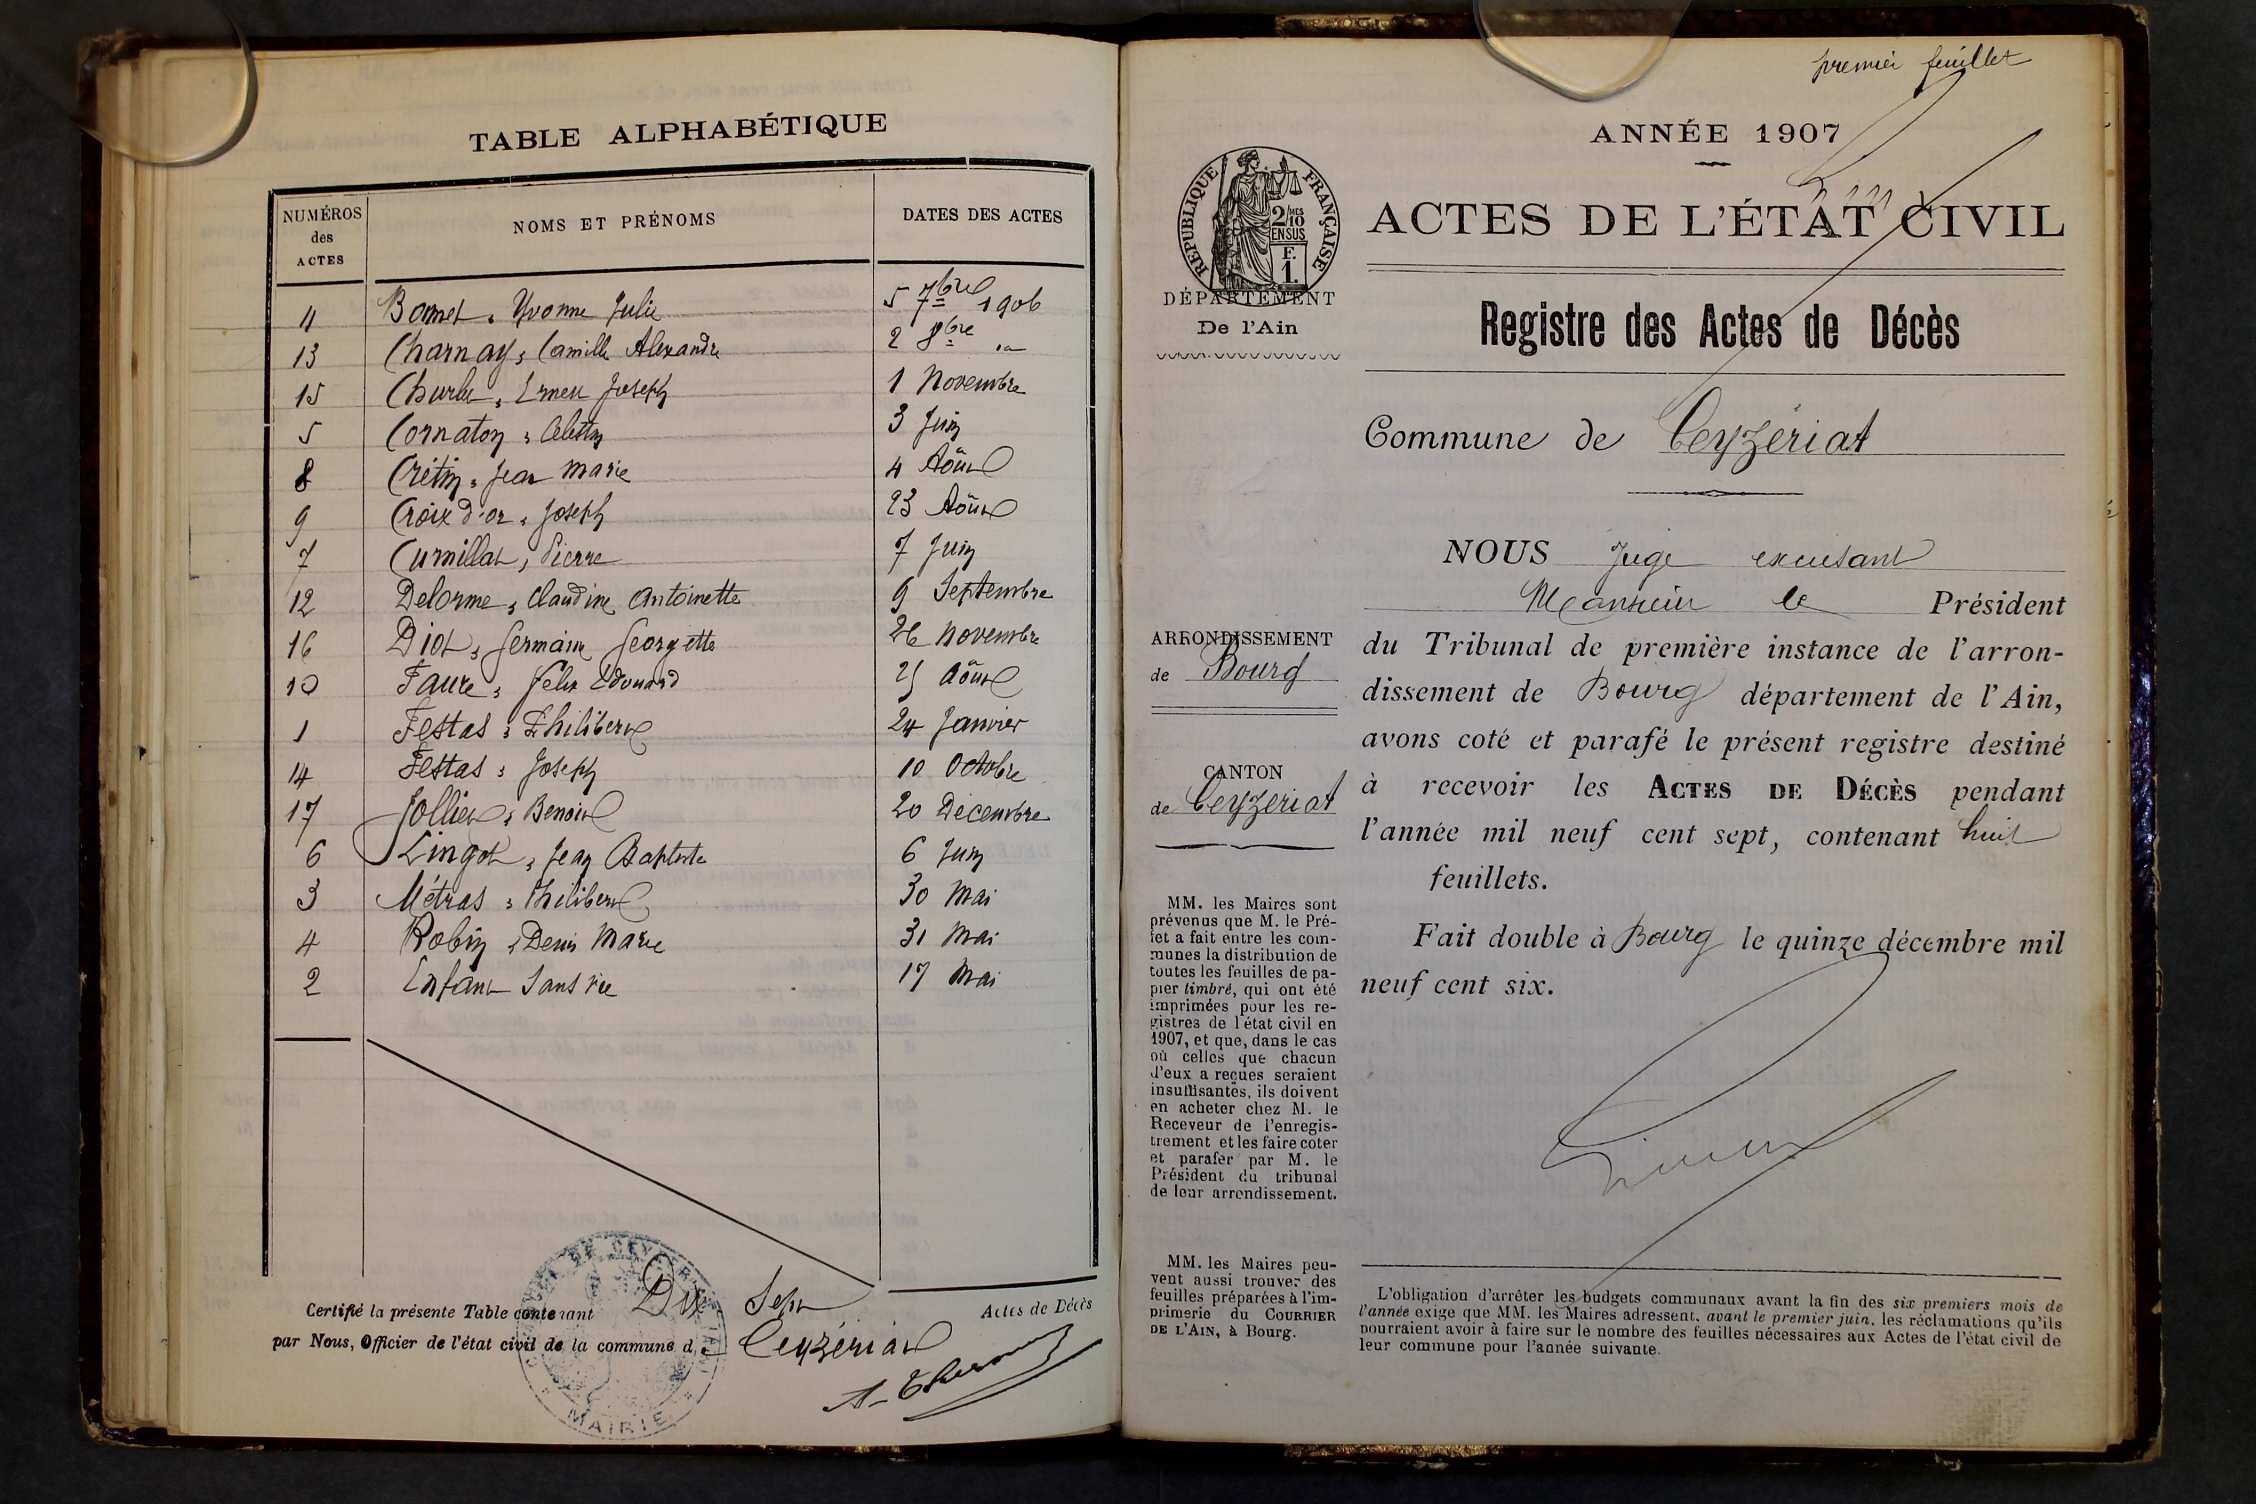 TABLE ALPHABÉTIQUE
NUMÉROS des ACTES NOMS ET PRÉNOMS DATES DES ACTES
11 Bonnet, Yvonne Julie 5 7bre 1906
13 Charnay, Camille Alexandre 2 8bre
15 Joseph 1 Novembre
5 Cornaton, Célestin 3 Juin
8 Crétin, Jean Marie 4 Aôut
9 Croix d'or, Joseph 23 Aôut
7 Curnillat, Pierre 7 Juin
12 Delorme, Claudine Antoinette 9 Septembre
16 Diot, Germaine Georgette 26 Novembre
10 Faure, Félix Edouard 25 Aôut
1 Festas, Philibert 24 Janvier
14 Festas, Joseph 10 Octobre
17 Jollier, Benoit 20 Décembre
6 Lingot, Jean Baptiste 6 Juin
3 Métras, Philibert 30 Mai
4 Robin, Denis Marie 31 Mai
2 Enfant Sans vie 17 Mai
Certifié la présente Table contenant Dix Sept Actes de Décès
par Nous, Officier de l'état civil de la commune d Ceyzériat
MAIRIE
premier feuillet
ANNÉE 1907
RÉPUBLIQUE FRANÇAISE
2/10 MES
EN SUS
F. 1.
ACTES DE L'ÉTAT CIVIL
DÉPARTEMENT
De l'Ain
Registre des Actes de Décès
Commune de Ceyzériat
NOUS Juge excusant
Monsieur le Président
du Tribunal de première instance de l'arron-
dissement de Bourg département de l'Ain,
avons coté et parafé le présent registre destiné
à recevoir les ACTES DE DÉCÈS pendant
l'année mil neuf cent sept, contenant huit
feuillets.
Fait double à Bourg le quinze décembre mil
neuf cent six.
ARRONDISSEMENT
de Bourg
CANTON
de Ceyzériat
MM. les Maires sont
prévenus que M. le Pré-
fet a fait entre les com-
munes la distribution de
toutes les feuilles de pa-
pier timbré, qui ont été
imprimées pour les re-
gistres de l'état civil en
1907, et que, dans le cas
où celles que chacun
d'eux a reçues seraient
insuffisantes, ils doivent
en acheter chez M. le
Receveur de l'enregis-
trement et les faire coter
et parafer par M. le
Président du tribunal
de leur arrondissement.
MM. les Maires peu-
vent aussi trouver des
feuilles préparées à l'im-
primerie du COURRIER
DE L'AIN, à Bourg.
L'obligation d'arrêter les budgets communaux avant la fin des six premiers mois de
l'année exige que MM. les Maires adressent, avant le premier juin, les réclamations qu'ils
pourraient avoir à faire sur le nombre des feuilles nécessaires aux Actes de l'état civil de
leur commune pour l'année suivante.